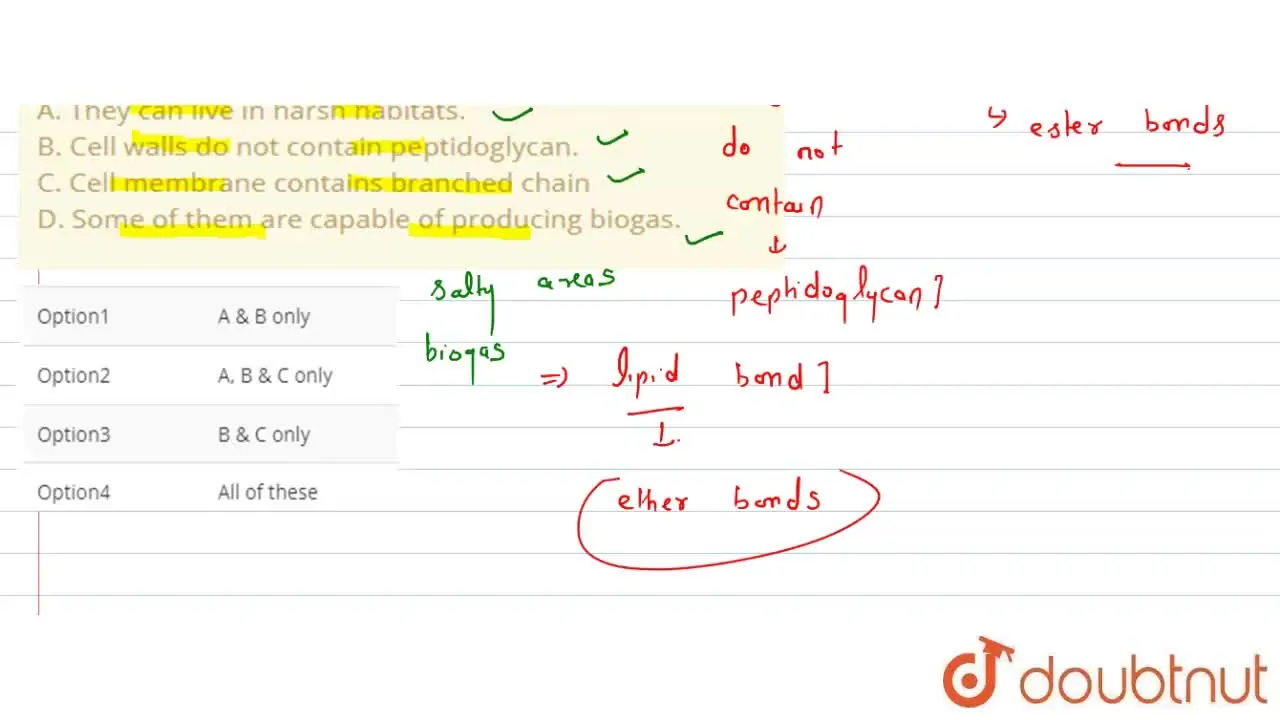 A. They can live in harsh habitats.
B. Cell walls do not contain peptidoglycan.
C. Cell membrane contains branched chain
D. Some of them are capable of producing biogas.
Option1 A & B only
Option2 A, B & C only
Option3 B & C only
Option4 All of these
salty areas
biogas
do not
contain
↓
peptidoglycan]
↳ ester bonds
=> lipid bond]
↓
ether bonds
doubtnut